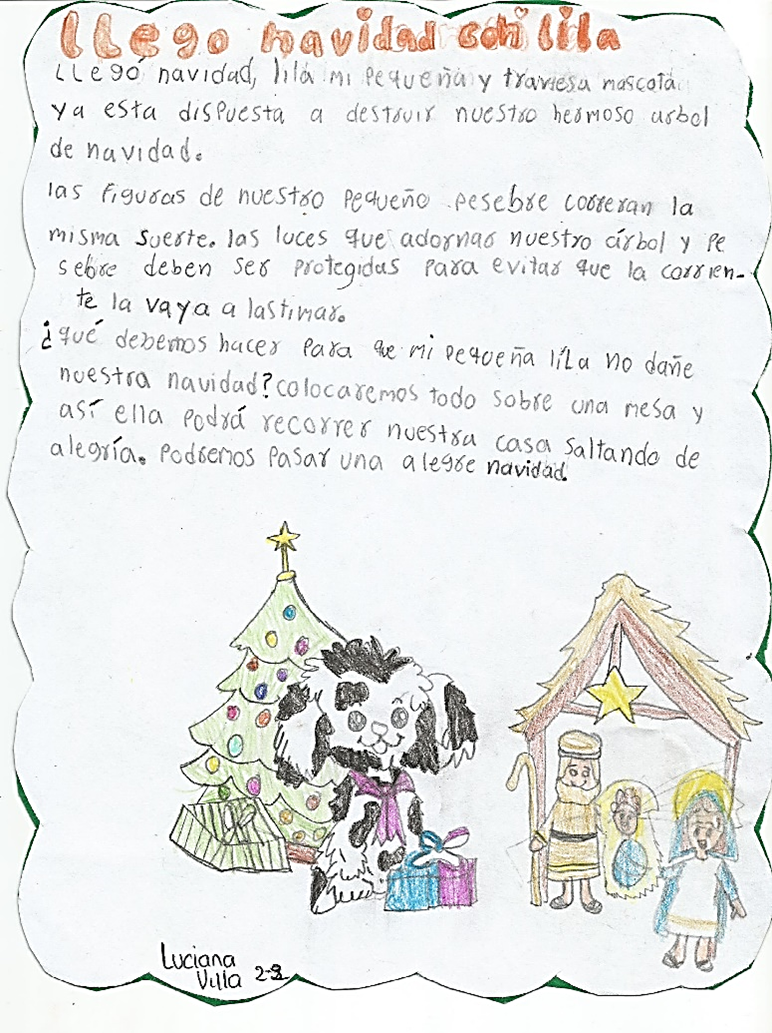 LLego navidad con lila
LLegó navidad, lila mi pequeña y traviesa mascota
ya esta dispuesta a destruir nuestro hermoso arbol
de navidad.
las figuras de nuestro pequeño pesebre correran la
misma suerte. las luces que adornas nuestro árbol y pe
sebre deben ser protegidas para evitar que la corrien-
te la vaya a lastimar.
¿qué debemos hacer para que mi pequeña lila no dañe
nuestra navidad? colocaremos todo sobre una mesa y
así ella podrá recorrer nuestra casa saltando de
alegría. podremos pasar una alegre navidad.
Luciana
Villa 2-2